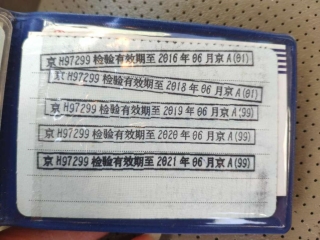 京 H97299 检验有效期至 2016 年 06 月京 A(01)
京 H97299 检验有效期至 2018 年 06 月京 A(01)
京 H97299 检验有效期至 2019 年 06 月京 A(99)
京 H97299 检验有效期至 2020 年 06 月京 A(99)
京 H97299 检验有效期至 2021 年 06 月京 A(99)